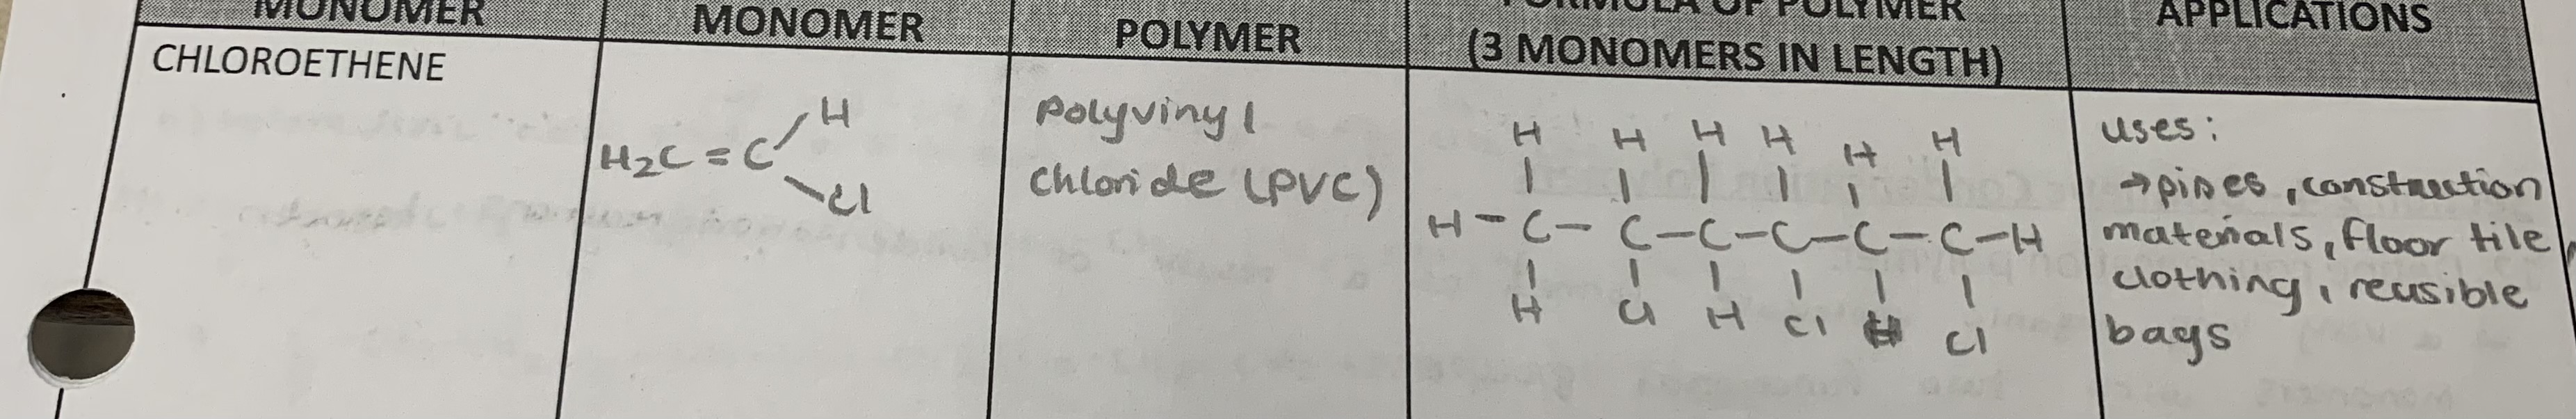 MONOMER
MONOMER
POLYMER
FORMULA OF POLYMER
(3 MONOMERS IN LENGTH)
APPLICATIONS
CHLOROETHENE
H
H₂C = C
Cl
polyvinyl
chloride (PVC)
H H H H H H
H - C - C - C - C - C - C - H
H Cl H Cl H Cl
uses:
→ pipes, construction
materials, floor tile,
clothing, reusible
bags